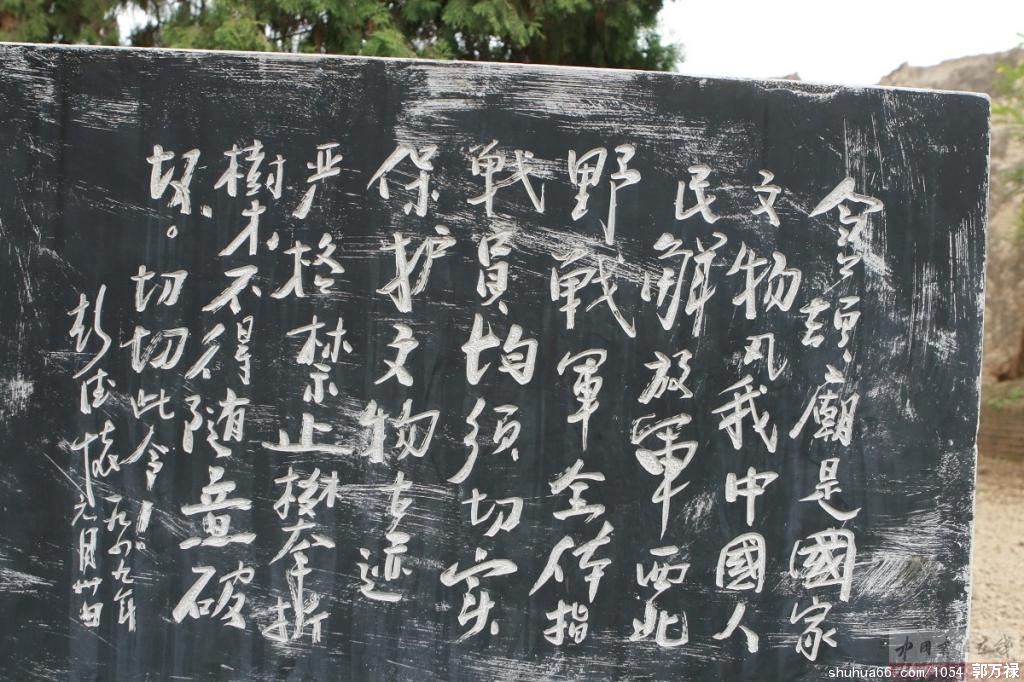 倉頡廟是國家
文物凡我中國人
民解放軍西北
野戰軍全体指
戦員均须切实
保护文物古迹
严格禁止攀折
樹木不得随意破
坏。切切此令！
彭德怀
一九四九年
元月卅日
shuhua66.com/1054 郭万禄